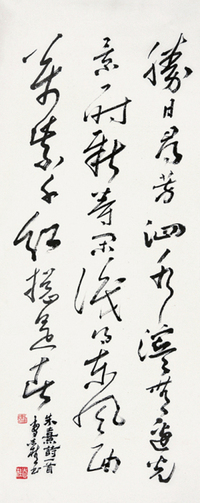 勝日尋芳泗水濱無邊光
景一時新等閒識得東風面
萬紫千紅總是春
朱熹詩一首